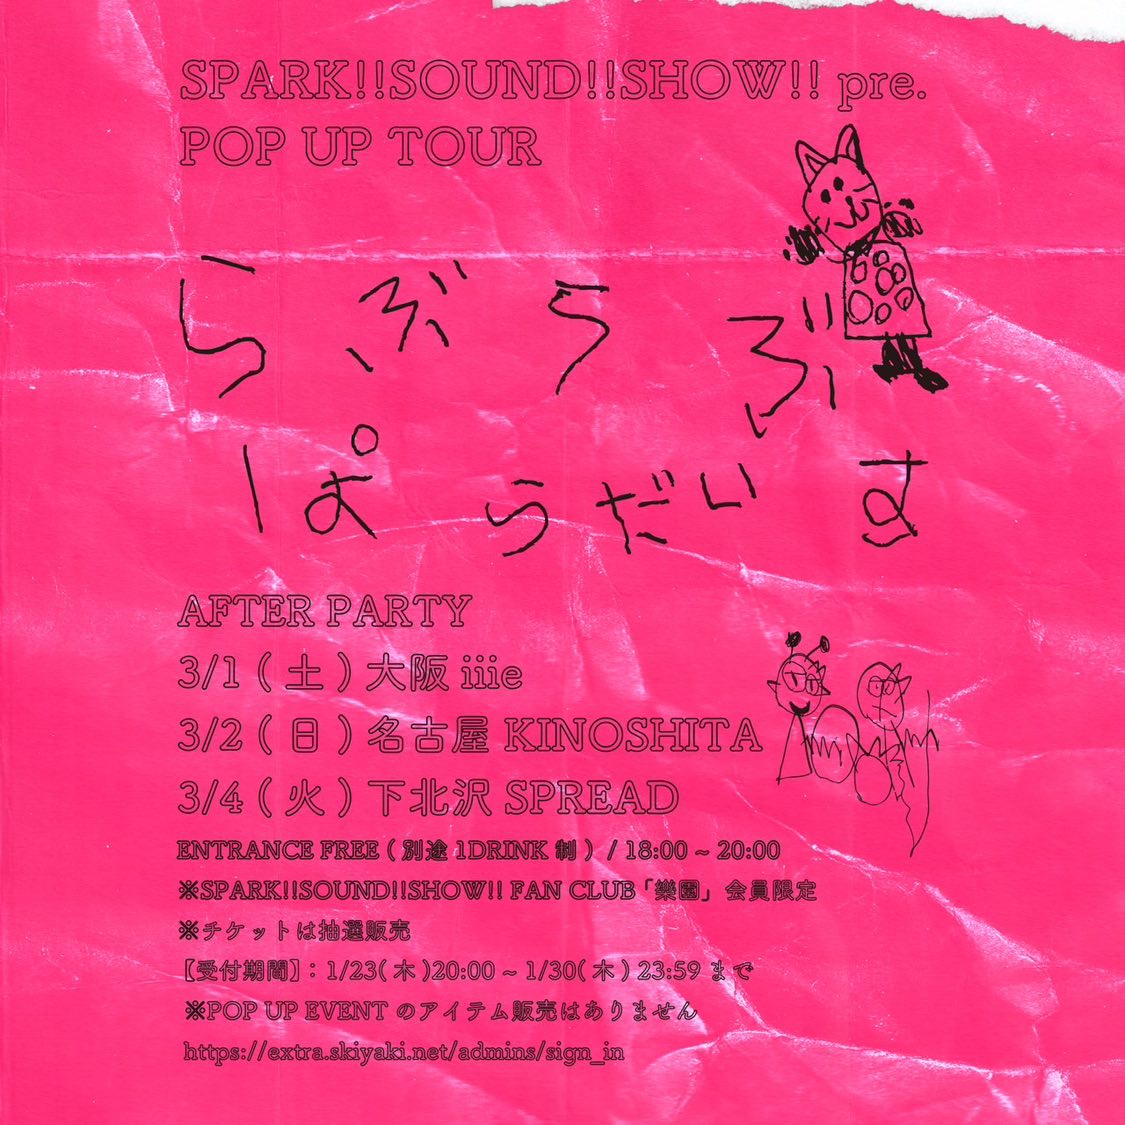 SPARK!!SOUND!!SHOW!! pre.
POP UP TOUR
らぶらぶ
ぱらだいす
AFTER PARTY
3/1 ( 土 ) 大阪 iiie
3/2 ( 日 ) 名古屋 KINOSHITA
3/4 ( 火 ) 下北沢 SPREAD
ENTRANCE FREE ( 別途 1DRINK 制 ) / 18:00 ~ 20:00
※SPARK!!SOUND!!SHOW!! FAN CLUB「樂園」会員限定
※チケットは抽選販売
【受付期間】: 1/23( 木 )20:00 ~ 1/30( 木 ) 23:59 まで
※POP UP EVENT のアイテム販売はありません
https://extra.skiyaki.net/admins/sign_in